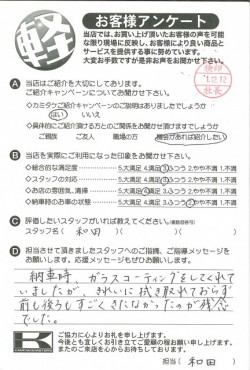 軽
お客様アンケート
当店では、お買い上げ頂いたお客様の声を可能
な限り現場に反映し、お客様により良い商品と
サービスを提供する事に努めています。
大変お手数ですが是非お声をお聞かせ下さい。
A 当店はご紹介を大切にしております。
ご紹介キャンペーンについてお聞かせ下さい。
◇カミタケご紹介キャンペーンのご説明はありましたでしょうか
はい いいえ
◇具体的にご紹介頂ける方とのご関係をお聞かせ頂けますでしょうか
ご家族 ご友人 職場の方 機会があれば紹介したい
B 当店を実際にご利用になった印象をお聞かせ下さい。
◇総合的な満足度 5.大満足 4.満足 3.ふつう 2.やや不満 1.不満
◇スタッフの対応 5.大満足 4.満足 3.ふつう 2.やや不満 1.不満
◇お店の雰囲気、清掃 5.大満足 4.満足 3.ふつう 2.やや不満 1.不満
◇納車時のお車の状態 5.大満足 4.満足 3.ふつう 2.やや不満 1.不満
C 評価したいスタッフがいれば教えてください。
スタッフ名( 和田 )( )( )
D 担当させて頂きましたスタッフへのご指摘、ご指導メッセージを
お願いします。応援メッセージもぜひお願いします。
納車時、ガラスコーティングをしてくれて
いましたが きれいに拭き取れておらず
前も後ろもすごくきたなかったのが残念
でした。
ご協力に心よりお礼を申し上げます。
今後とも宜しくお引き立てご愛顧の程お願い申し上げます。
またのご来店を心からお待ちしております。
担当( 和田 )